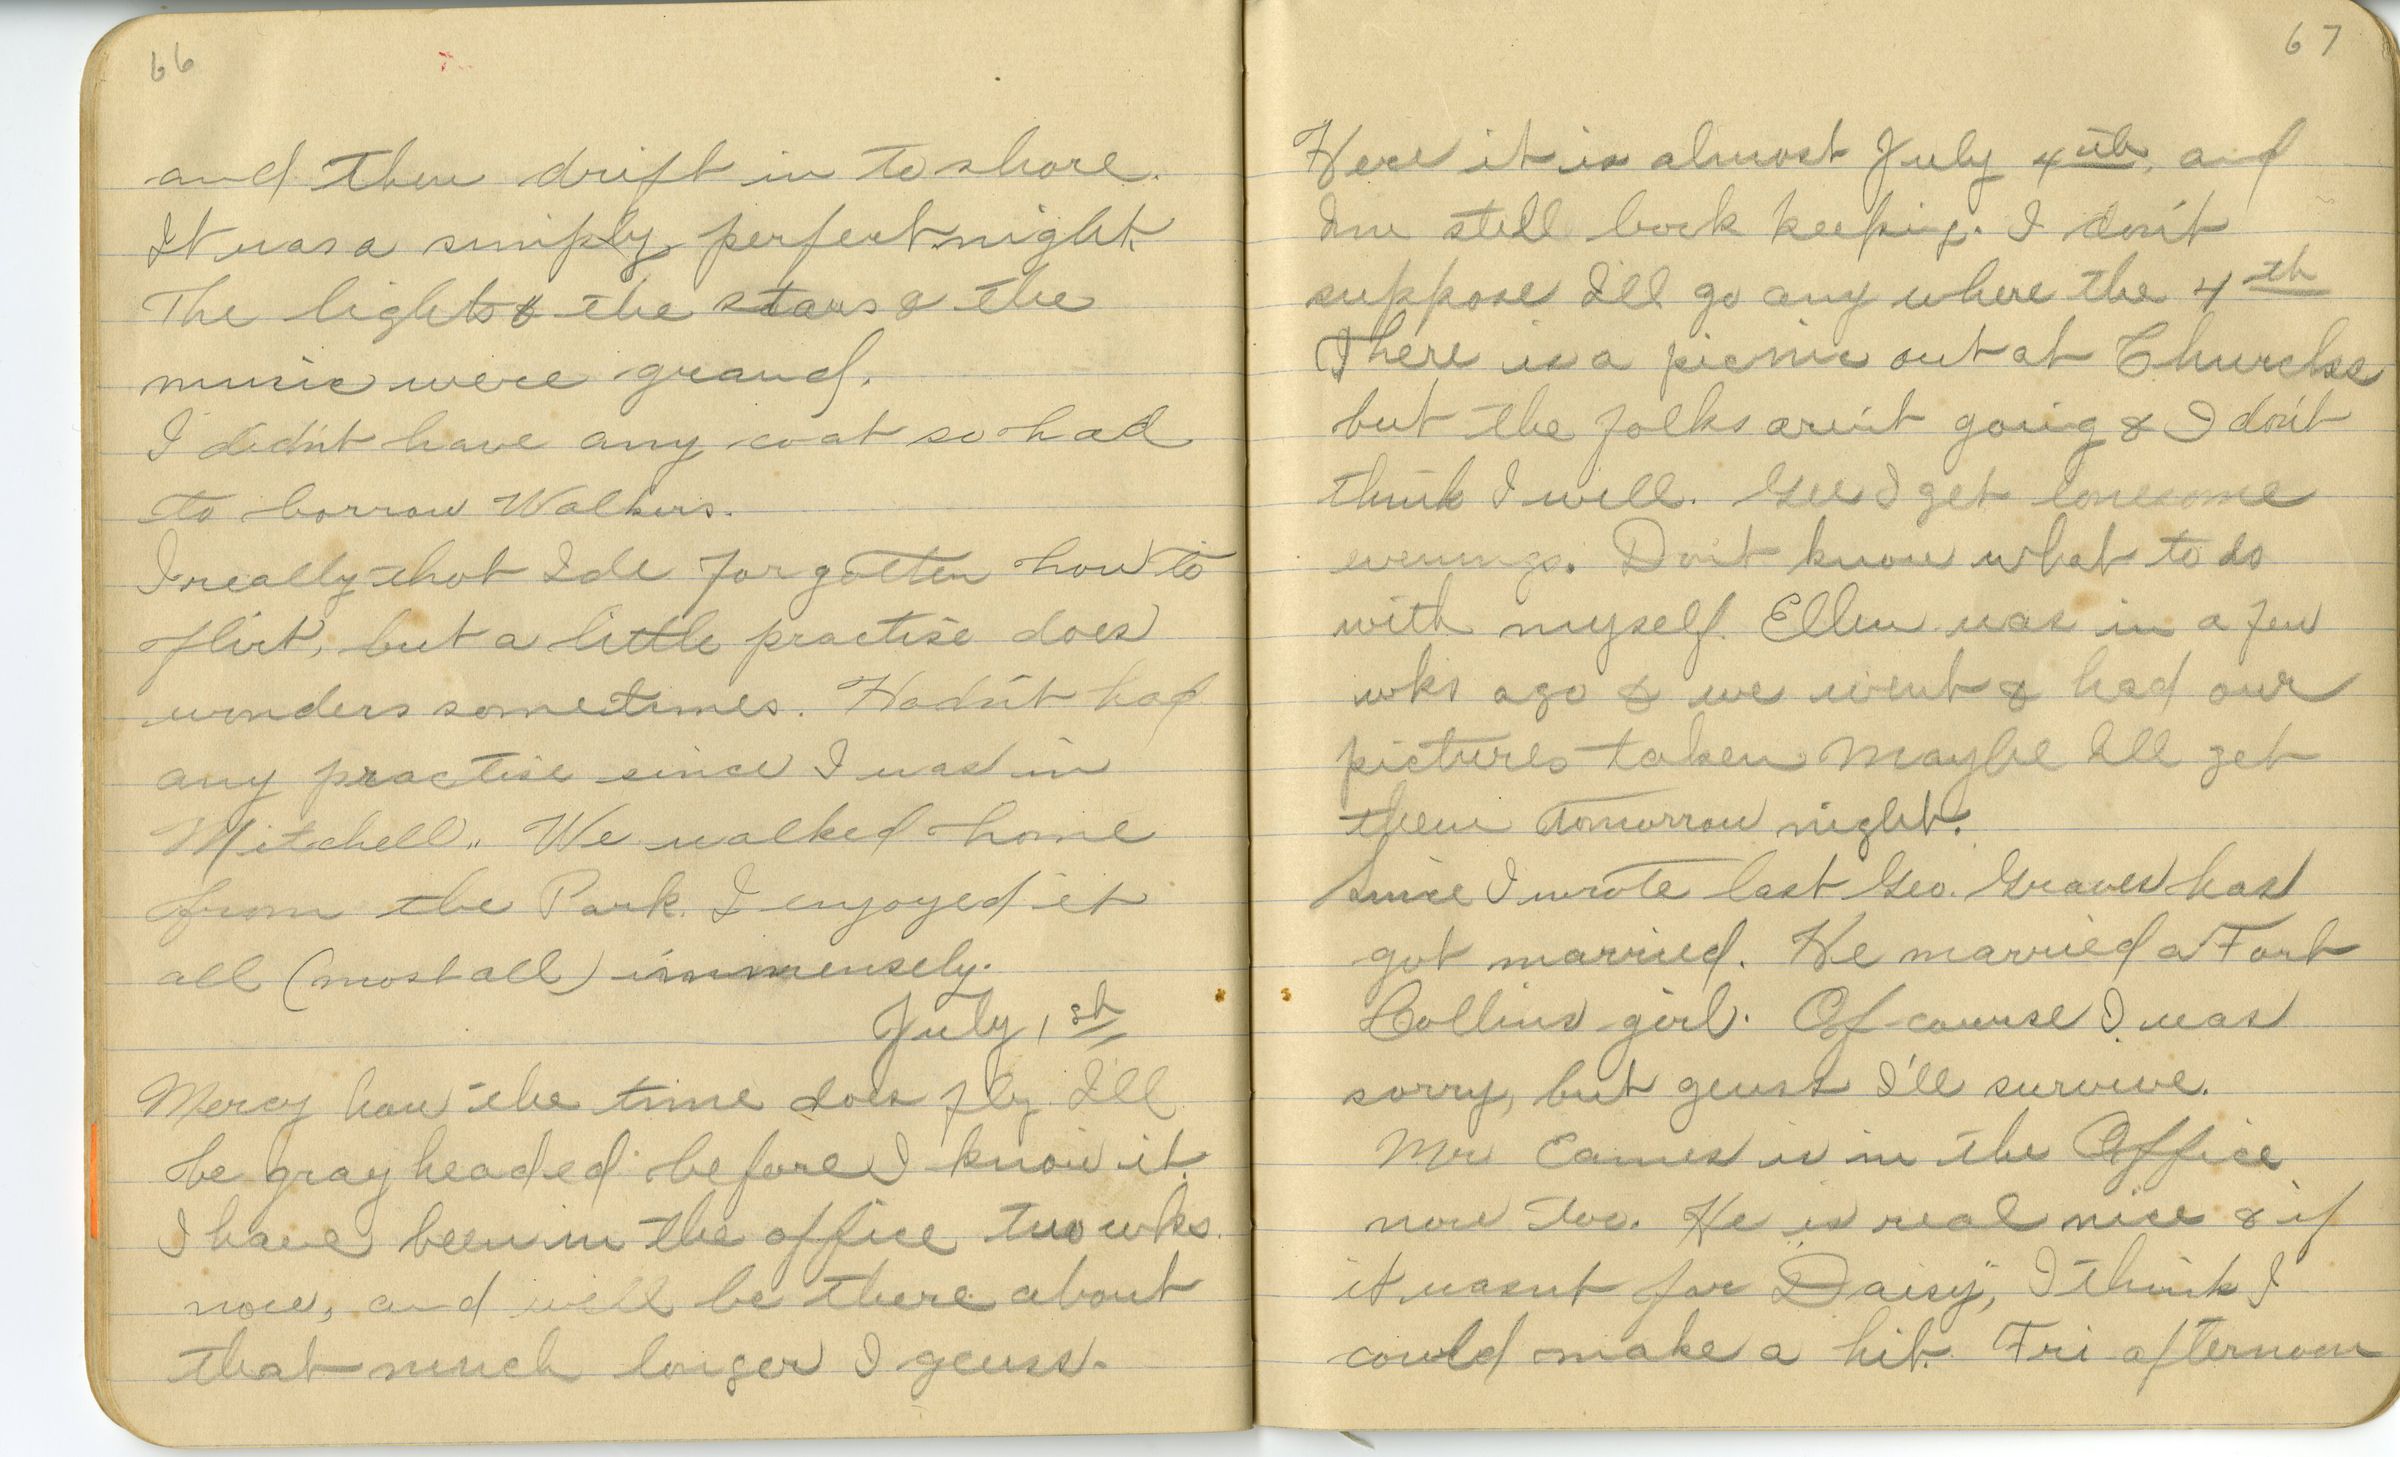 66
and then drift in to shore.
It was a simply perfect night.
The lights & the stars & the
music were grand.
I didn't have any coat so had
to borrow Walkers.
I really thot Ide forgotten how to
flirt, but a little practise does
wonders sometimes. Hadn't had
any practise since I was in
Mitchell.. We walked home
from the Park. I enjoyed it
all (most all) immensely.
July 1st
Mercy how the time does fly. I'll
be gray headed before I know it.
I have been in the office two wks.
now, and will be there about
that much longer I geuss.
67
Here it is almost July 4th, and
Im still book keeping. I don't
suppose I'll go any where the 4th
There is a picnic out at Churches
but the folks are'nt going & I don't
think I will. Gee I get lonesome
evenings. Don't know what to do
with myself. Ellen was in a few
wks ago & we went & had our
pictures taken Maybe I'll get
them tomorrow night.
Since I wrote last Geo. Graves has
got married. He married a Fort
Collins girl. Of course I was
sorry, but geuss I'll survive.
Mr. Eames is in the Office
now too. He is real nice & if
it wasnt for Daisy, I think I
could make a hit. Fri afternoon